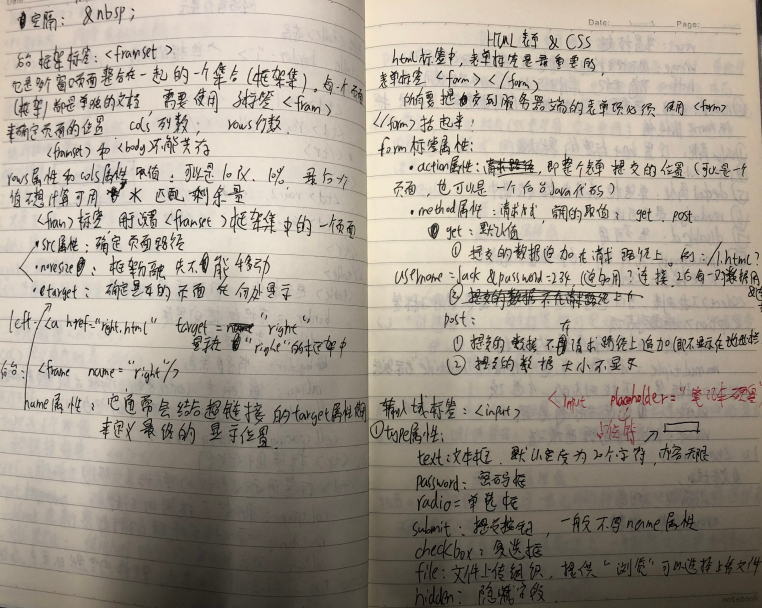 空隔： &nbsp;
框架标签：<framset>
也是多个窗口页面整合在一起的一个集合(框架集)。每一个页面
(框架)都是单独的文档 需要使用 子标签 <fram>
来确定页面的位置 cols 列数， rows行数。
<framset> 和 <body>不能共存
rows属性和cols属性 取值：可以是10PX、10%、最后一个
值不想计算可用 * 匹配 剩余量
<fram>标签，用于设置<framset>框架集中的一个页面
•src属性：确定页面路径
•noresize： 框架 不能移动
•target： 确定 的页面 在何处显示
left <a href="right.html" target = "right"
显示在 "right"的框架中
右： <frame name="right"/>
name属性：它通常会结合超链接的target属性
来定义最终的 显示位置
Date: Page:
HTML 表单 & CSS
html标签中，表单标签是最重要的，
表单标签 <form> </form>
所有要提交到服务器端的表单项必须 使用<form>
</form>括起来！
form标签属性：
•action属性：请求路径，即整个表单 提交的位置(可以是一个
页面，也可以是 一个后台Java代码)
•method属性：请求方式，常用的取值： get、post
get：默认值
① 提交的数据追加在请求 路径上。例：/1.html?
username=jack&password=234 (追加用?连接，之后每一对数据用&
③ 提交的数据不在请求路径上
post：
① 提交的数据 不在请求路径上追加(即不显示在地址栏
② 提交的数据 大小不显示
输入域标签：<input>
<Input placeholder="笔记本
占位符
①type属性：
text：文本框，默认宽度为20个字符，内容无限
password：密码框
radio=单选框
submit：提交按钮，一般不写name属性
checkbox：复选框
file：文件上传组织，提供"浏览"可以选择上传文件
hidden：隐藏字段
notebook